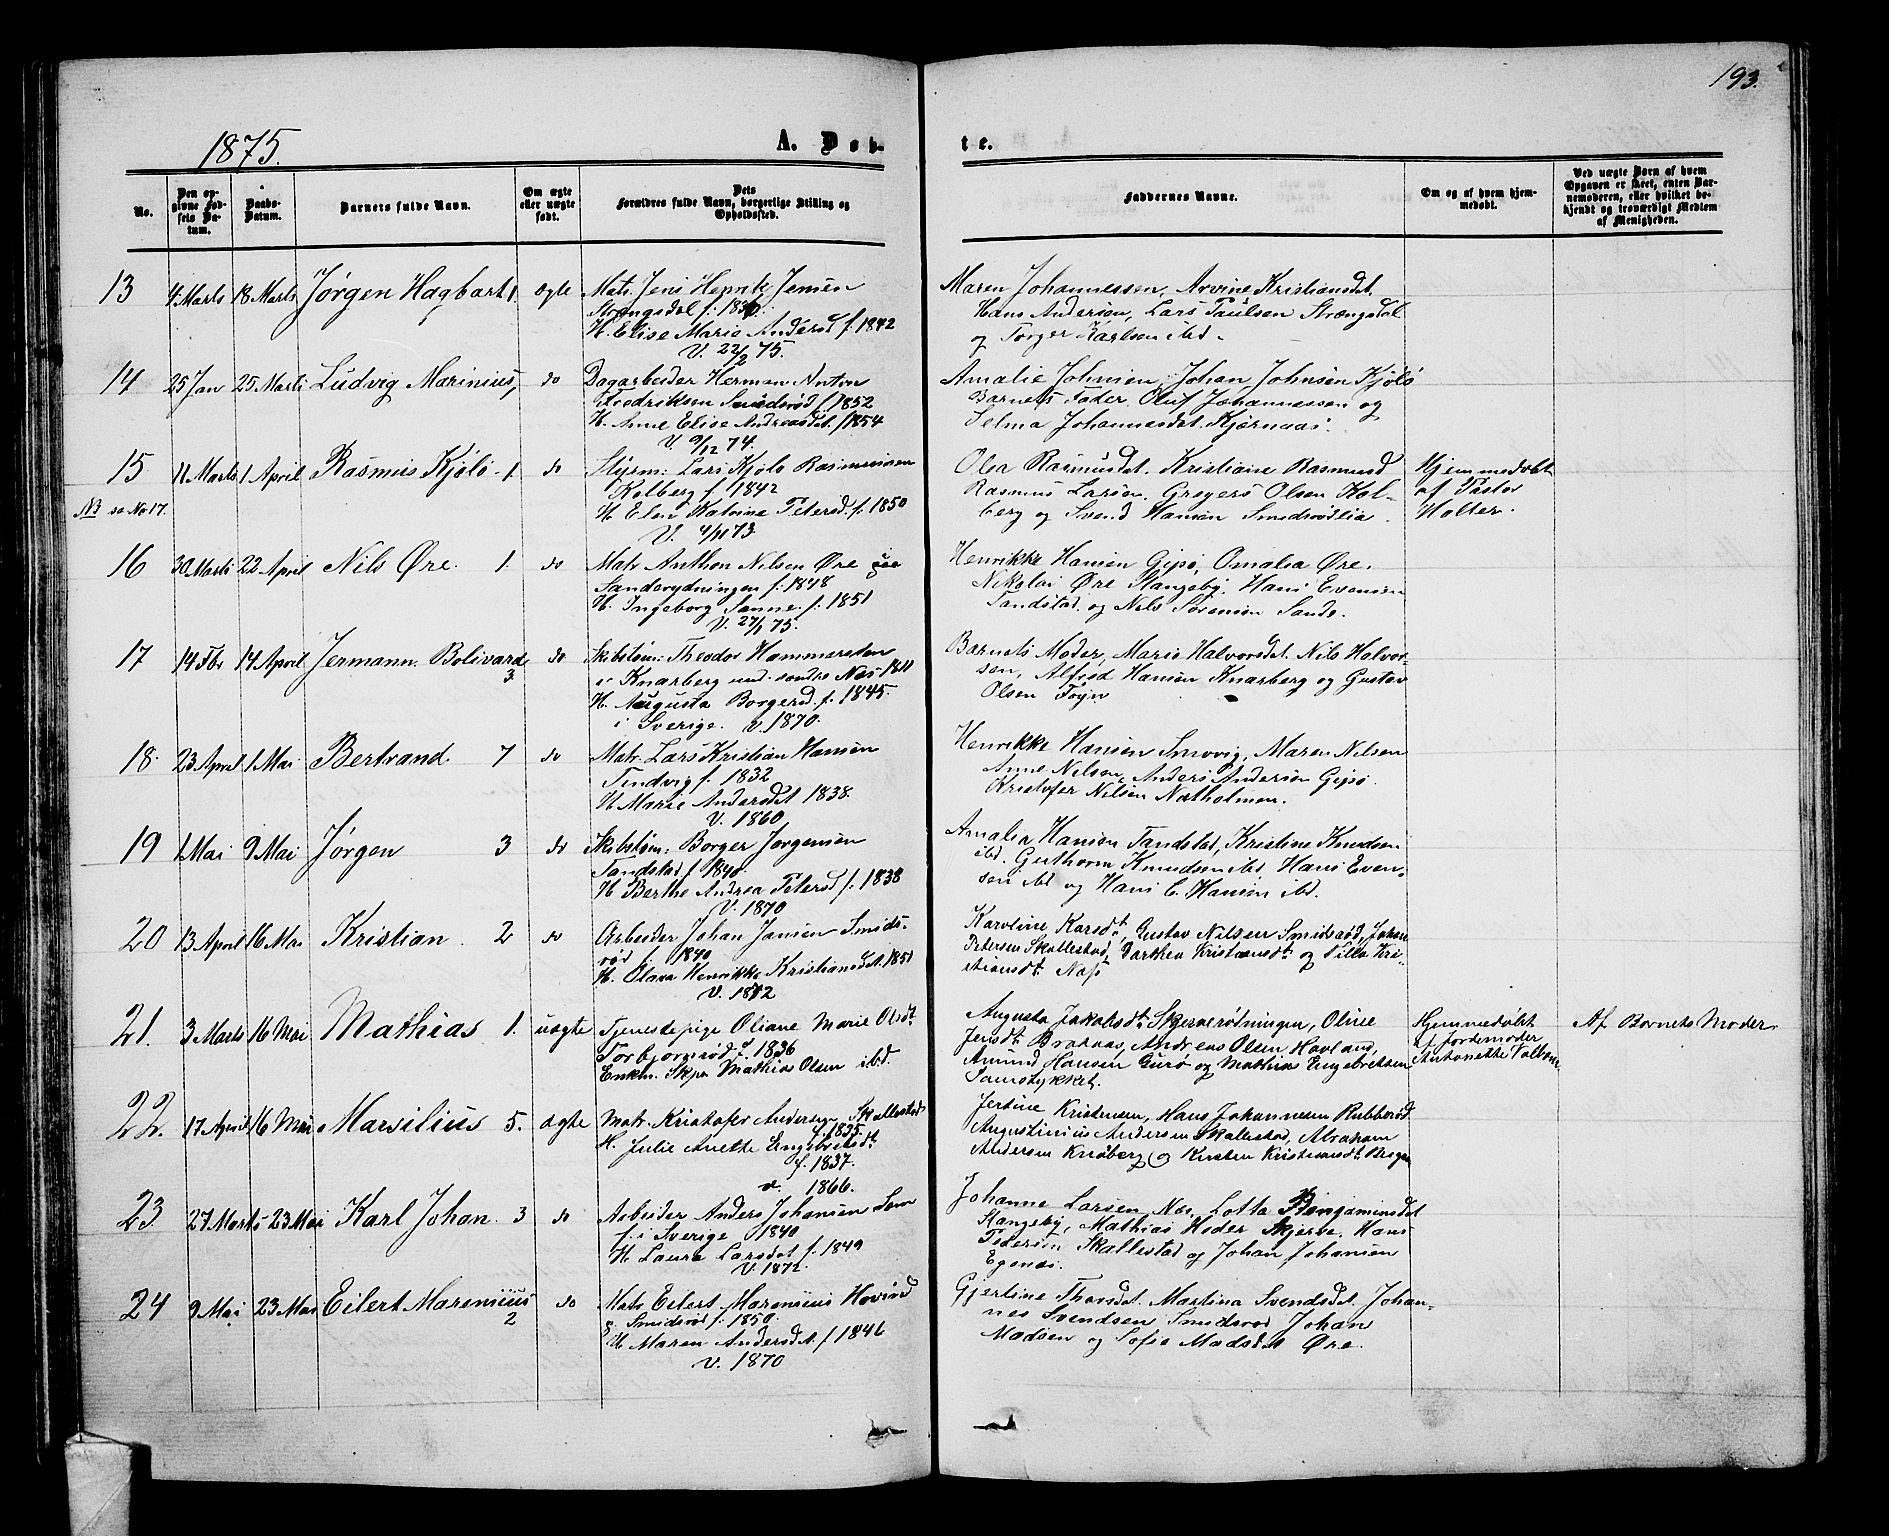 193.
1875.
A. Døb-
te.
No.
Den op-
givne Fød-
sels Da-
tum.
Daabs-
Datum.
Barnets fulde Navn.
Om ægte
eller uægte
født.
Dets
Forældres fulde Navn, borgerlige Stilling og
Opholdssted.
Faddernes Navne.
Om og af hvem hjem-
medøbt.
Ved uægte Børn af hvem
Opgaven er skeet, enten Bar-
nemoderen, eller hvilket be-
kjendt og troværdigt Medlem
af Menigheden.
13 4 Marts 18 Marts Jørgen Hagbart 1. ægte Matr. Jens Henrik Jensen
Strengsdal f.
H. Elise Marie Andersd f. 1842
V. 22/2 75.
Maren Johannessen, Arvine Kristiansdt.
Hans Andersen, Lars Paulsen Strængsdal
og Torger Karlsen ibd.
14 25 Jan 25 Marts Ludvig Marinius, do Dagarbeider Herman Anton
Fredriksen Smidsrød f 1852
H. Anne Elise Andreasdt. f 1854
V 9/12 74.
Amalie Johnsen, Johan Johnsen Kjølø
Barnets Fader, Oluf Johannessen og
Selma Johannesdt. Kjærnaas.
15 11 Marts 1 April Rasmus Kjølø 1. do Styrm: Lars Kjølø Rasmussen
NB se No 17.
Kolberg f. 1842
H. Elen Katrine Petersd. f. 1850
V. 4/11 73
Olea Rasmusdt. Kristiane Rasmusd
Rasmus Larsen. Gregers Olsen Kol-
berg og Svend Hansen Smidsrødlia.
Hjemmedøbt
af Pastor
Holter.
16 30 Marts 22 April Nils Øre. 1. do Matr Anthon Nilsen Øre
Sanderydningen f. 1848
H. Ingeborg Sanne. f. 1851
V. 27/1 75.
Henrikke Hansen Gipø, Omalia Øre.
Nikolai Øre Stangeby, Hans Evensen
Tandstad og Nils Sørensen Sande.
17 14 Fbr 14 April Jermann Bolivard 3. do Skibstøm: Theodor Hammersten
i Knarberg und. søndre Nes 1841
H. Augusta Borgersd. f. 1845.
i Sverige. v. 1870.
Barnets Moder, Marie Halvorsdt. Nils Halvor-
sen, Alfred Hansen Knarberg og Gustav
Olsen Føyn
18. 23 April 1 Mai Bertrand. 7 do Matr. Lars Kristian Hansen
Tindvig f. 1832
H Marie Andersdt 1838.
V. 1860.
Henrikke Hansen Smvvig, Maren Nilsen
Anne Nilsen, Anders Andersen Gipø.
Kristofer Nilsen Natholmen.
19 1 Mai 9 Mai Jørgen 3 do Skibstøm: Borger Jørgensen
Tandstad f. 1840.
H Berthe Andrea Petersd f. 1838
V. 1870
Amalia Hansen Tandstad, Kristine Knudsen
ibd. Guthorm Knudsen ibd, Hans Even-
sen ibd og Hans C. Hansen ibd.
20 13 April 16 Mai Kristian. 2 do Arbeider Johan Jansen Smids-
rød f. 1840
H. Olava Henrikke Kristiansdt. 1851
V. 1872
Karoline Karsdt. Gustav Nilsen Smidsrød, Johan
Petersen Skallestad, Dorthea Kristiansdt og Tilla Kri-
stiansdt. Næs
21. 3 Marts 16 Mai Mathias 1. uægte Tjenestepige Oliane Marie Olsdt.
Torbjørnsrød f. 1836
Enkm. Skpr Mathias Olsen ibd.
Augusta Jakobsdt. Skjerverøtningen, Oline
Jensdt. Brataas, Andreas Olsen Havland,
Amund Hansen Gurø og Mathias Engebretsen
Saustykket.
Hjemmedøbt
af Jordemoder
Antonette
Af Barnets Moder
22. 17 April 16 Mai Marsilius 5. ægte Matr. Kristofer Andersen Skallestad
f. 1835.
H. Julie Anette Engebretsdt.
f. 1837.
v. 1866.
Jertine Kristensen, Hans Johannesen Rubberød
Augustinius Andersen Skallestad, Abraham
Andersen Knøberg og Kirsten Kristiansdt. Berge
23. 27 Marts 23 Mai Karl Johan. 3 do Arbeider Anders Johansen Lem
f. i Sverige 1840
H. Laura Larsdt f. 1849
V. 1872.
Johanne Larsen Næs, Lotta Bengaminsdt
Stangeby, Mathias Heder Skjerve. Hans
Pedersen Skallestad og Johan Johansen
Egenes.
24 9 Mai 23 Mai Eilert Marenius 2 do Matr Eilert Marenius Hovind
Smidsrød f. 1850.
H Maren Andersdt. f 1846
V. 1870
Gjertine Thorsdt. Martina Svendsdt. Johan-
nes Svendsen Smidsrød Johan
Madsen og Sofie Madsdt Øre.